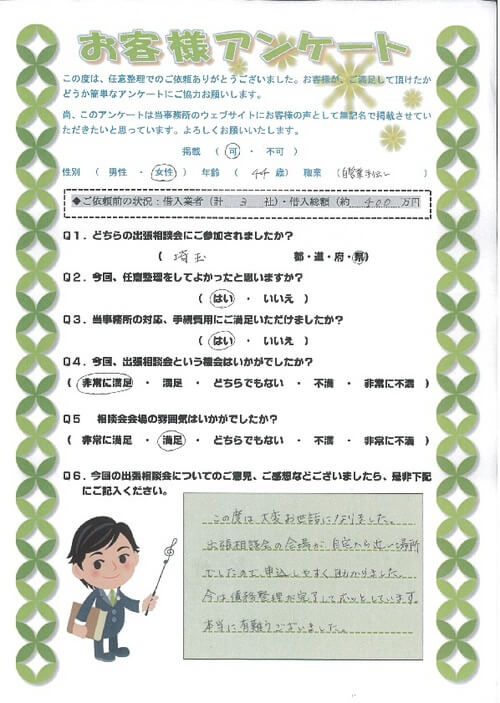 お客様アンケート
この度は、任意整理でのご依頼ありがとうございました。お客様が、ご満足して頂けたか
どうか簡単なアンケートにご協力お願いします。
尚、このアンケートは当事務所のウェブサイトにお客様の声として無記名で掲載させてい
ただきたいと思っています。よろしくお願いいたします。
掲載 ( 可 ・ 不可 )
性別 ( 男性 ・ 女性 ) 年齢 ( 44 歳) 職業 (自営業手伝い)
◆ご依頼前の状況：借入業者（計 3 社）・借入総額（約 400 万円
Q1．どちらの出張相談会にご参加されましたか？
( 埼玉 都・道・府・県)
Q2．今回、任意整理をしてよかったと思いますか？
( はい ・ いいえ )
Q3．当事務所の対応、手続費用にご満足いただけましたか？
( はい ・ いいえ )
Q4．今回、出張相談会という機会はいかがでしたか？
( 非常に満足 ・ 満足 ・ どちらでもない ・ 不満 ・ 非常に不満 )
Q5 相談会会場の雰囲気はいかがでしたか？
( 非常に満足 ・ 満足 ・ どちらでもない ・ 不満 ・ 非常に不満 )
Q6．今回の出張相談会についてのご意見、ご感想などございましたら、是非下記
にご記入ください。
この度は大変お世話になりました。
出張相談会の会場が、自宅から近い場所
でしたので、申込しやすく助かりました。
今は債務整理が完了してホッとしています。
本当に有難うございました。